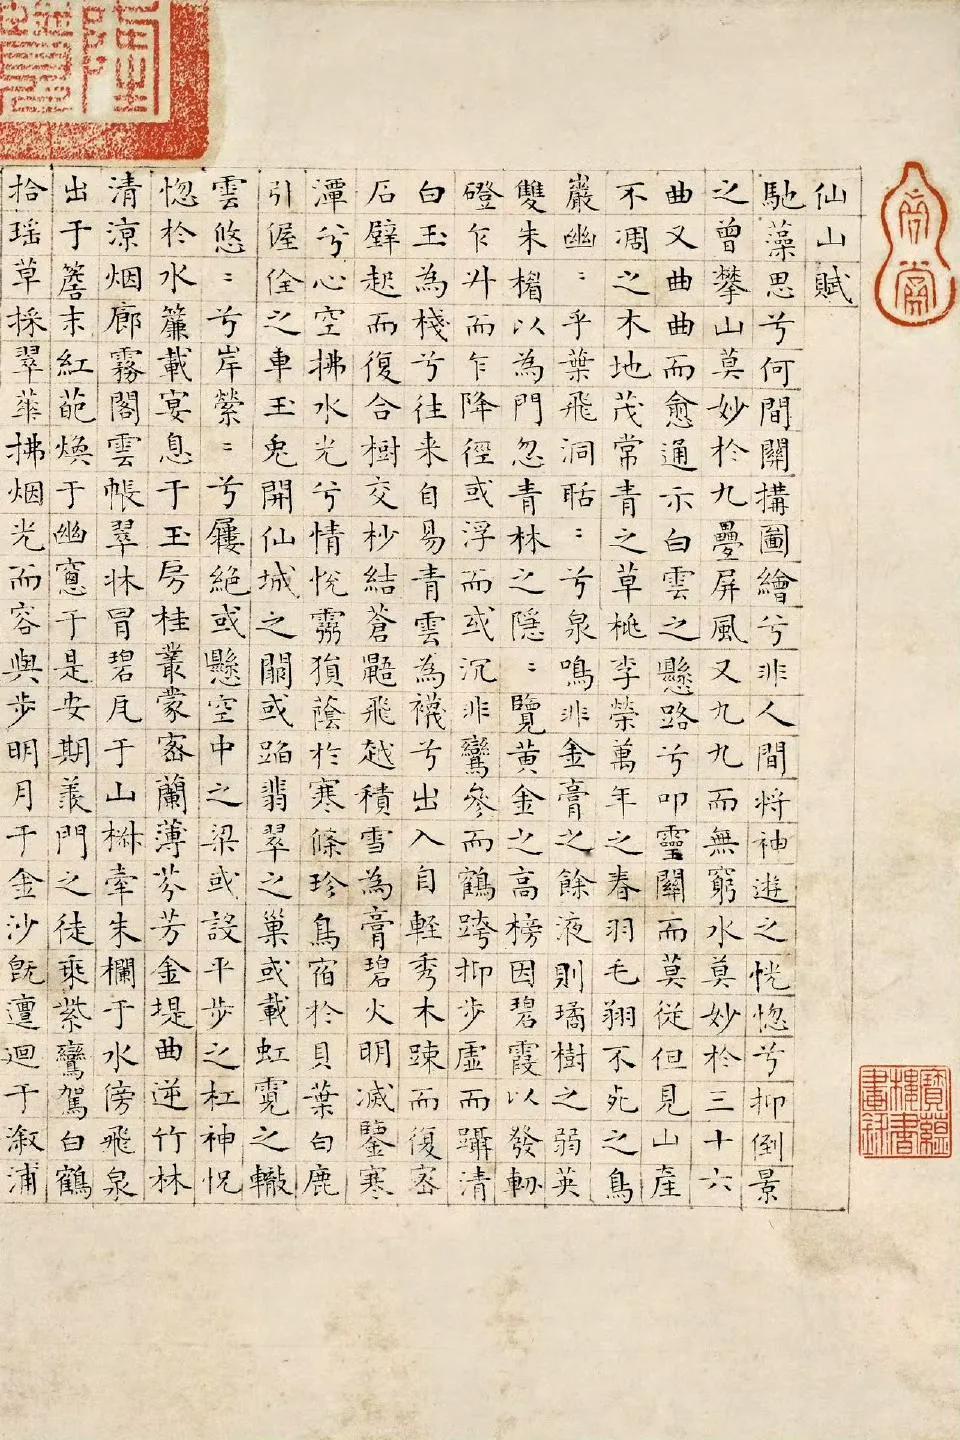 仙山賦
馳藻思兮何間關搆圖繪兮非人間將神遊之恍惚兮抑倒景
之曾攀山莫妙於九疊屏風又九九而無窮水莫妙於三十六
曲又曲曲而愈通示白雲之懸路兮叩靈關而莫從但見山產
不凋之木地茂常青之草桃李榮萬年之春羽毛翔不死之鳥
巖幽〻乎葉飛洞聒〻兮泉鳴非金膏之餘液則璚樹之弱英
雙朱楣以為門忽青林之隱〻覽黃金之高榜因碧霞以發軔
磴乍升而乍降徑或浮而或沉非鸞參而鶴跨抑步虛而躡清
白玉為棧兮往来自易青雲為襪兮出入自輕秀木踈而復密
石壁起而復合樹交杪結蒼鼯飛越積雪為膏碧火明滅鑒寒
潭兮心空拂水光兮情悅霧猿蔭於寒條珍鳥宿於貝葉白鹿
引偓佺之車玉兎開仙城之關或蹈翡翠之巢或載虹霓之轍
雲悠〻兮岸縈〻兮屨絕或懸空中之梁或設平步之杠神怳
惚於水簾載宴息于玉房桂叢蒙密蘭薄芬芳金堤曲逆竹林
清涼烟廊霧閣雲帳翠牀冒碧瓦于山椒牽朱欄于水傍飛泉
出于簷末紅葩煥于幽窻于是安期羨門之徒乘紫鸞駕白鶴
拾瑶草採翠華拂烟光而容與步明月于金沙旣邅迴于溆浦